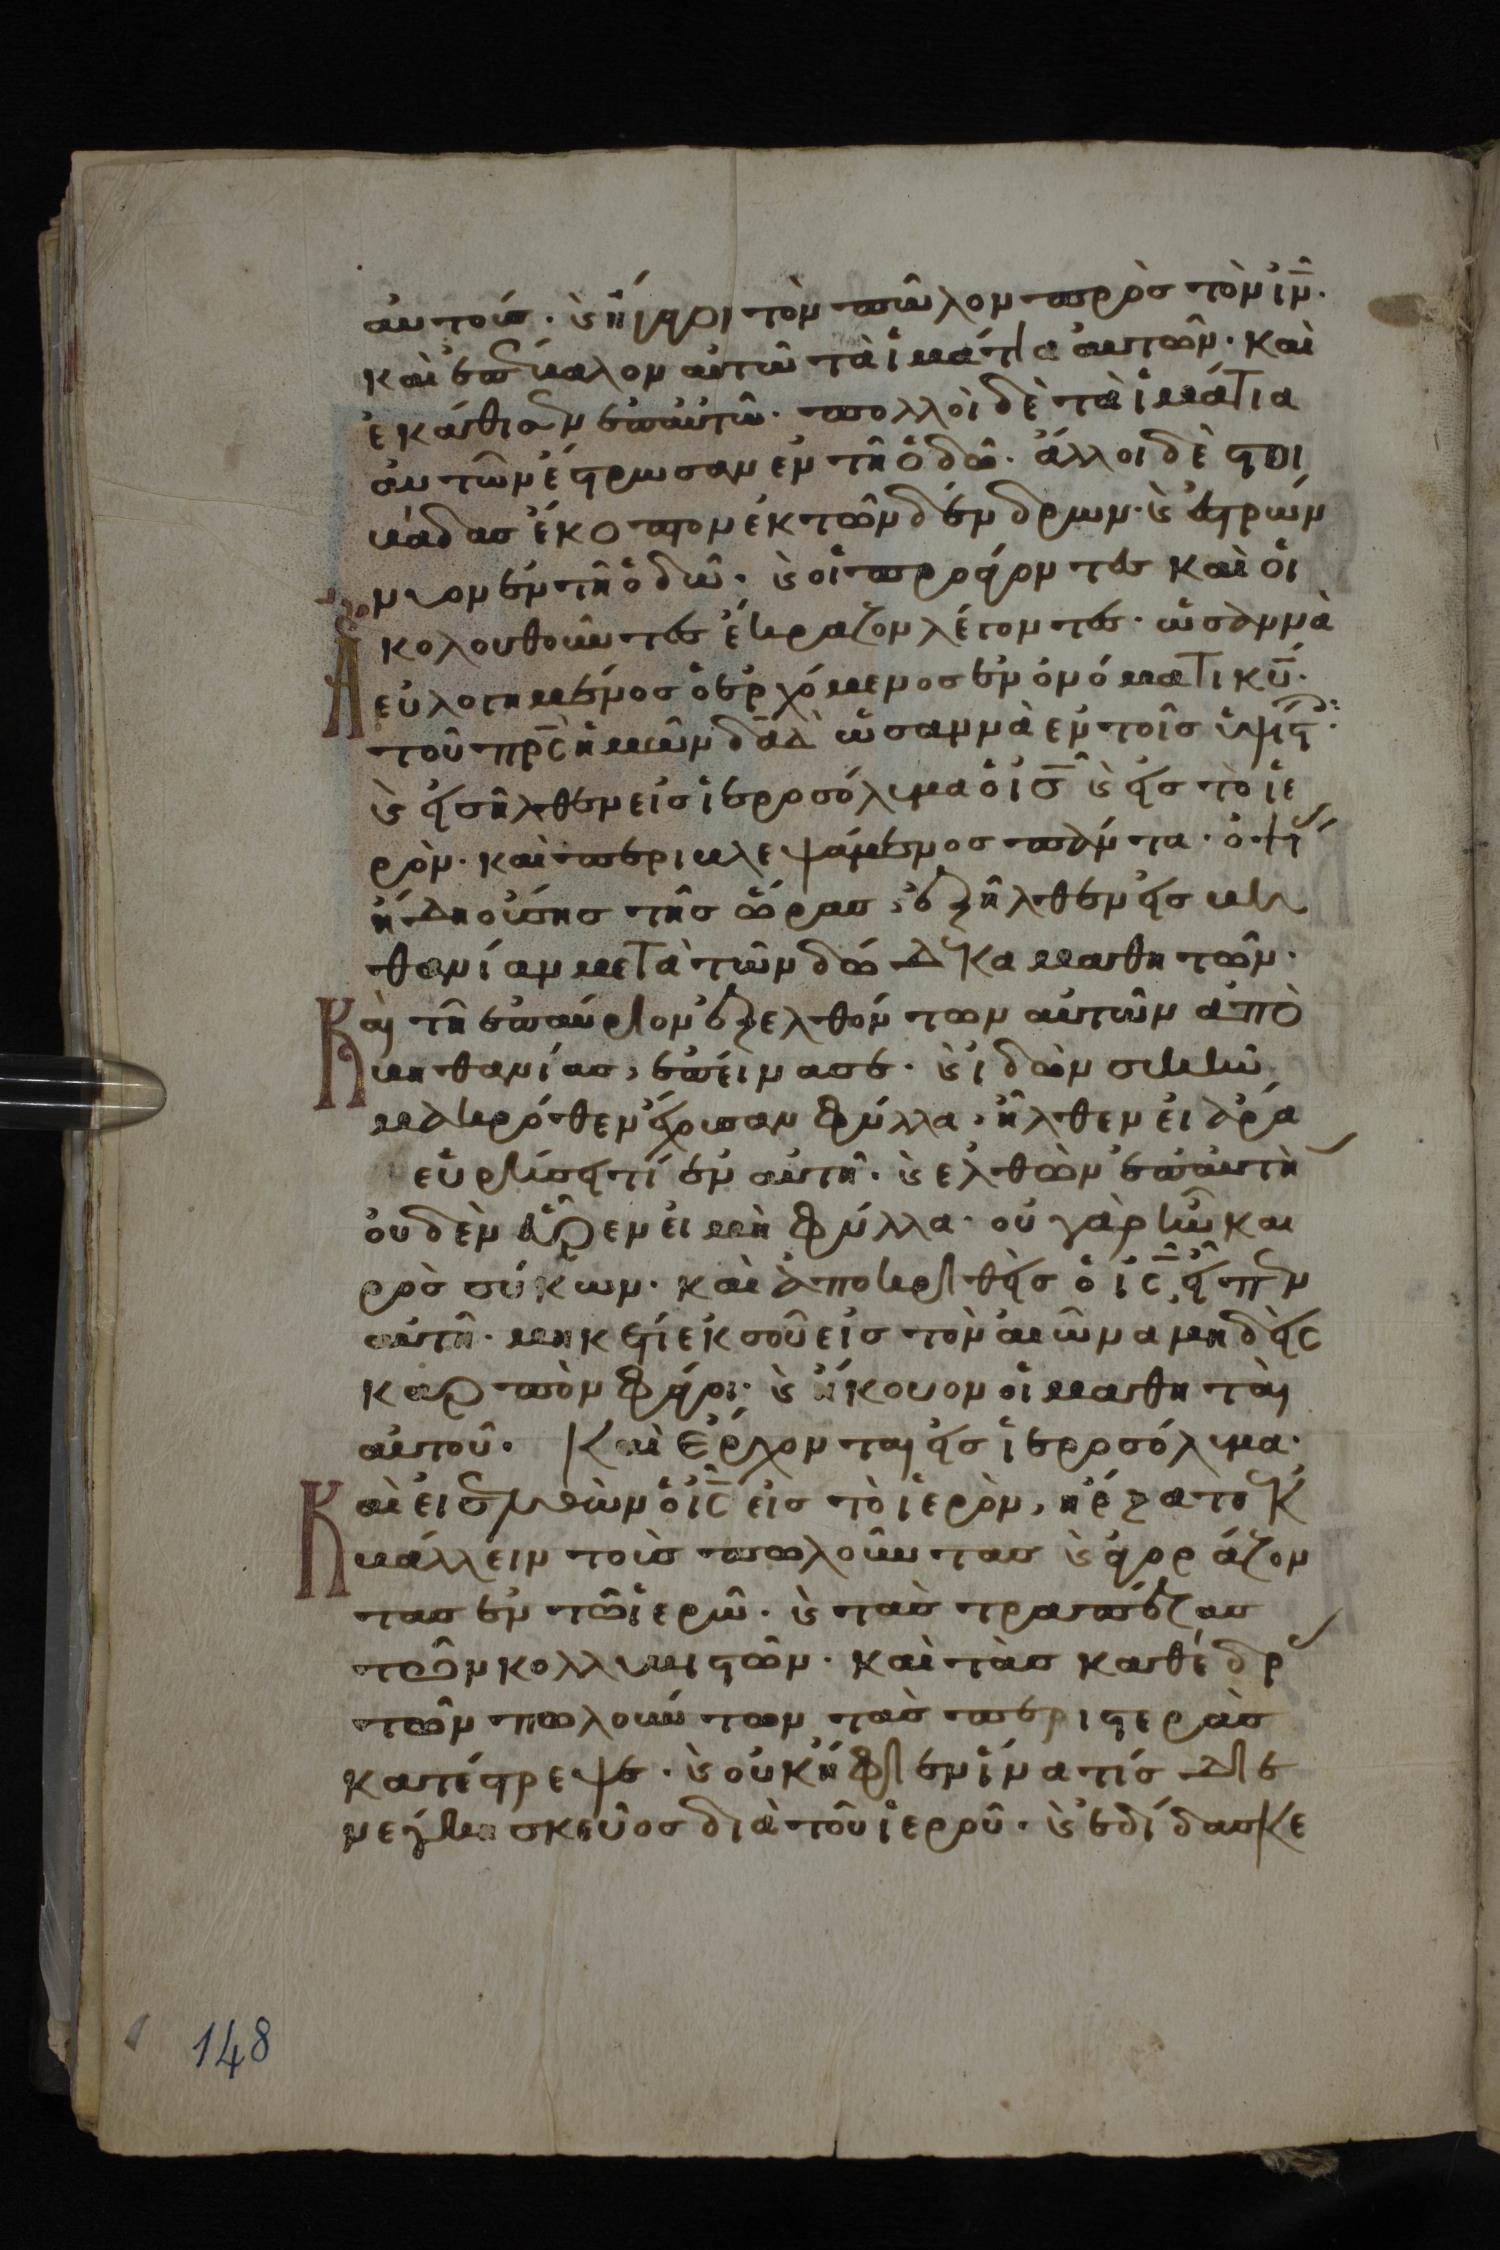 αὐτοῖς. ϗ ἤγαγον τὸν πῶλον πρὸς τὸν ι̅ν̅.
καὶ ἐπέβαλον αὐτῶ τὰ ἱμάτια αὐτῶν. καὶ
ἐκάθισεν ἐπαὐτῶ. πολλοὶ δὲ τὰ ἱμάτια
αὐτῶν ἔστρωσαν ἐν τῆ ὁδῶ. ἄλλοι δὲ στοι
βάδας ἔκοπτον ἐκ τῶν δένδρων. ϗ ἐστρών
νυον ἐν τῆ ὁδῶ. ϗ οἱ προάγοντες καὶ οἱ
ἀκολουθοῦντες ἔκραζον λέγοντες. ὡσαννὰ
εὐλογημένος ὁ ἐρχόμενος ἐν ὀνόματι κ̅υ̅.
τοῦ π̅ρ̅ς̅ ἡμῶν δ̅α̅δ̅ ὡσαννὰ ἐν τοῖς ὑψίστ:
ϗ εἰσῆλθεν εἰς ἱεροσόλυμα ὁ ι̅ς̅ ϗ εἰς τὸ ἱε
ρὸν. καὶ περιβλεψάμενος πάντα. ὀψί
ἤδη οὔσης τῆς ὥρας, ἐξῆλθεν εἰς βη
θανίαν μετὰ τῶν δώδεκα μαθητῶν.
Καὶ τῆ ἐπαύριον ἐξελθόντων αὐτῶν ἀπὸ
βηθανίας, ἐπείνασε. ϗ ἰδὼν συκῆν
μακρόθεν ἔχουσαν φύλλα, ἦλθεν εἰ ἄρα
εὑρήσει τί ἐν αὐτῆ. ϗ ἐλθὼν ἐπαὐτὴ
οὐδὲν εὗρεν εἰ μὴ φύλλα. οὐ γὰρ ἦν και
ρὸς σύκων. καὶ ἀποκριθεὶς ὁ ι̅ς̅ εἶπεν
αὐτῆ. μηκέτι ἐκ σοῦ εἰς τὸν αἰῶνα μηδεὶς
καρπὸν φάγοι. ϗ ἤκουον οἱ μαθηταὶ
αὐτοῦ. Καὶ ἔρχονται εἰς ἱεροσόλυμα.
Καὶ εἰσελθὼν ὁ ι̅ς̅ εἰς τὸ ἱερὸν, ἤρξατο ἐκ
βάλλειν τοὺς πωλοῦντας ϗ ἀγοράζον
τας ἐν τῶ ἱερῶ. ϗ τὰς τραπέζας
τῶν κολλυβιστῶν. καὶ τὰς καθέδρ
τῶν πωλούντων τὰς περιστερὰς
κατέστρεψε. ϗ οὐκ ἤφιεν ἵνα τίς διε
νέγκη σκεῦος διὰ τοῦ ἱεροῦ. ϗ ἐδίδασκε
148